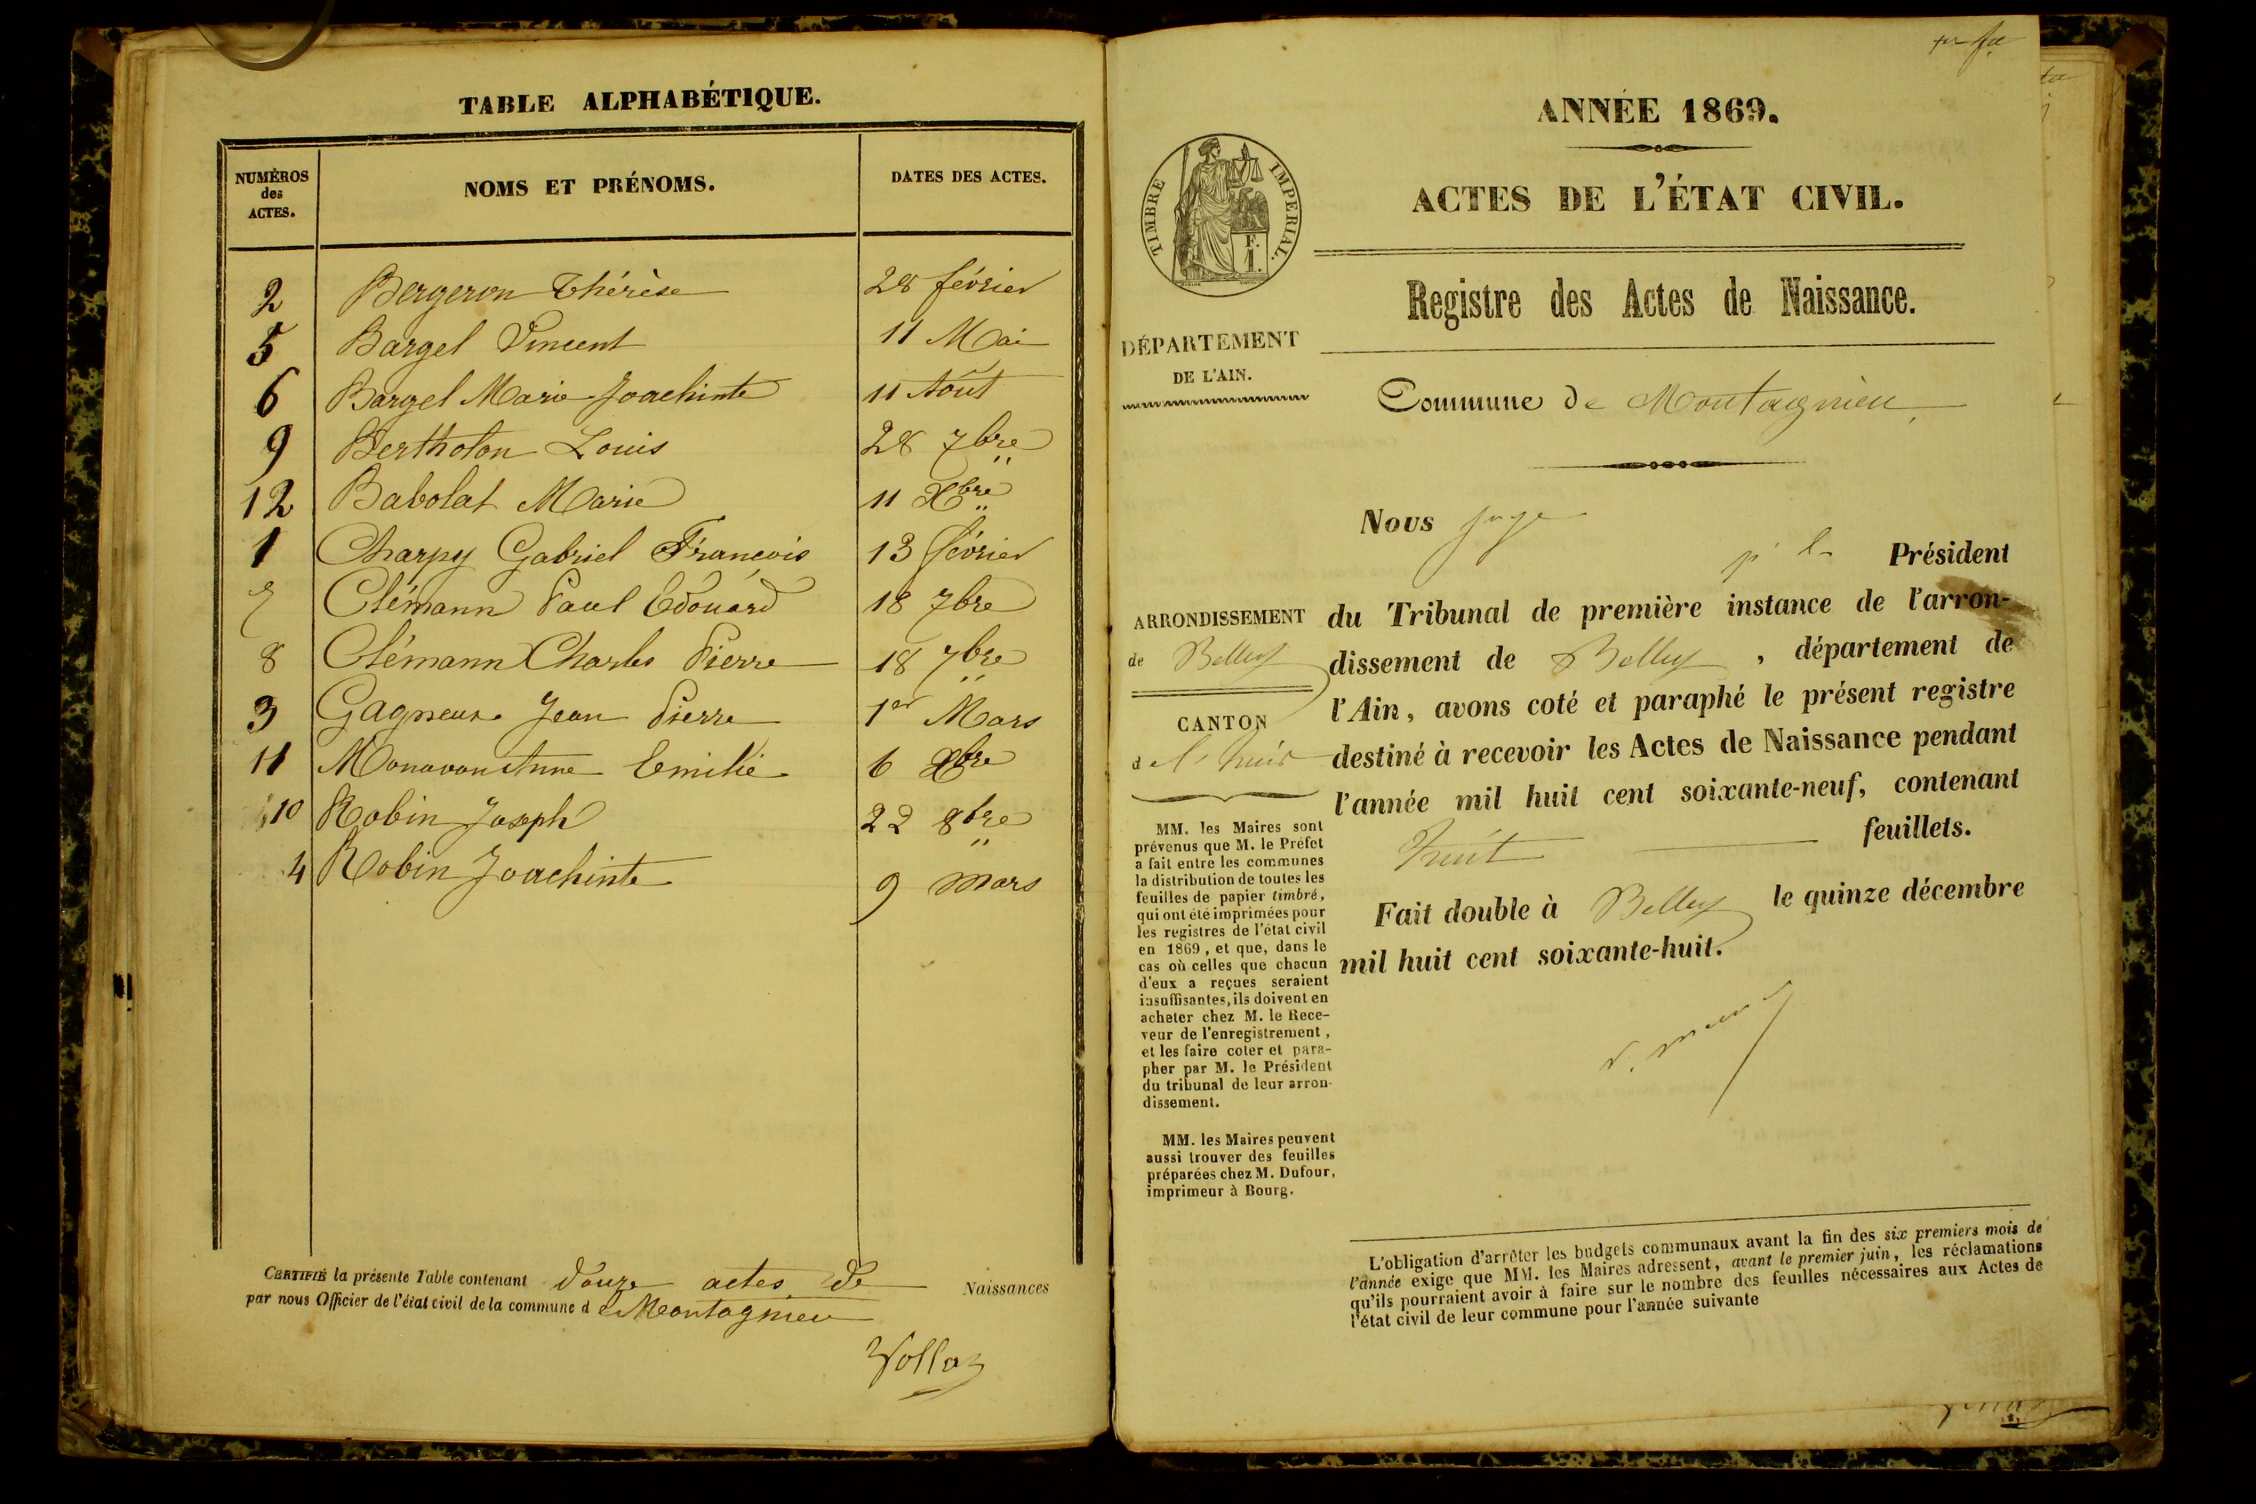 TABLE ALPHABÉTIQUE.
NUMÉROS
des
ACTES.
NOMS ET PRÉNOMS.
DATES DES ACTES.
2 Bergeron Thérèse 28 février
5 Bargel Vincent 11 Mai
6 Bargel Marie Joachinte 11 Août
9 Bertholon Louis 28 7bre
12 Babolat Marie 11 Xbre
1 Charpy Gabriel François 13 février
7 Clémann Paul Edouard 18 7bre
8 Clémann Charles Pierre 18 7bre
3 Gagneux Jean Pierre 1er Mars
11 Monavon Anne Emilie 6 Xbre
10 Robin Joseph 22 8bre
4 Robin Joachinte 9 Mars
CERTIFIÉ la présente Table contenant douze actes de Naissances
par nous Officier de l'état civil de la commune de Montagnieu
Vollaz
ANNÉE 1869.
TIMBRE IMPERIAL.
F.
1.
ACTES DE L'ÉTAT CIVIL.
Registre des Actes de Naissance.
DÉPARTEMENT
DE L'AIN.
Commune de Montagnieu
Nous juge
pr le Président
du Tribunal de première instance de l'arron-
dissement de Belley, département de
l'Ain, avons coté et paraphé le présent registre
destiné à recevoir les Actes de Naissance pendant
l'année mil huit cent soixante-neuf, contenant
huit feuillets.
Fait double à Belley le quinze décembre
mil huit cent soixante-huit.
ARRONDISSEMENT
de Belley
CANTON
de l'huis
MM. les Maires sont
prévenus que M. le Préfet
a fait entre les communes
la distribution de toutes les
feuilles de papier timbré,
qui ont été imprimées pour
les registres de l'état civil
en 1869, et que, dans le
cas où celles que chacun
d'eux a reçues seraient
insuffisantes, ils doivent en
acheter chez M. le Rece-
veur de l'enregistrement,
et les faire coter et para-
pher par M. le Président
du tribunal de leur arron-
dissement.
MM. les Maires peuvent
aussi trouver des feuilles
préparées chez M. Dufour,
imprimeur à Bourg.
L'obligation d'arrêter les budgets communaux avant la fin des six premiers mois de
l'année exige que MM. les Maires adressent, avant le premier juin, les réclamations
qu'ils pourraient avoir à faire sur le nombre des feuilles nécessaires aux Actes de
l'état civil de leur commune pour l'année suivante